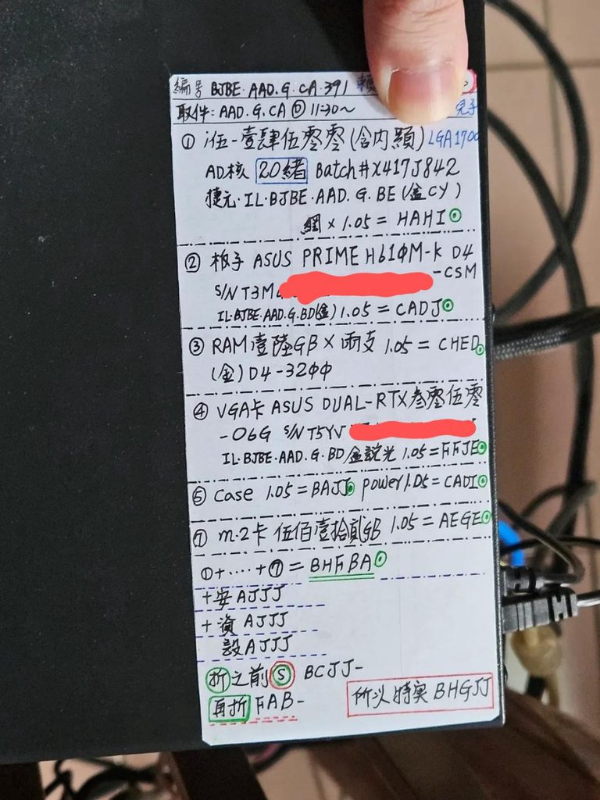 編号 BJBE·AAD.G.CA·391
取件: AAD.G.CA ⑤ 11:30~
① i伍-壹肆伍零零(含內顯) LGA1700
AD核 20緒 Batch#X417J842
捷元·IL·BJBE·AAD.G.BE(金CY)
×1.05 = HAHI
② 板子 ASUS PRIME H61ϕM-K D4
S/N T3M -CSM
IL·BJBE·AAD.G.BD(金)1.05 = CADJ
③ RAM壹陸GB×兩支 1.05 = CHED
(金) D4-32ϕϕ
④ VGA卡 ASUS DUAL-RTX叁零伍零
-O6G S/N T5YV
IL·BJBE·AAD.G.BD 1.05=FFJE
⑤ Case 1.05=BAJJ power1.05=CADI
⑦ m.2卡 伍佰壹拾貳GB 1.05=AEGE
①+·····+⑦ = BHFBA
+安AJJJ
+資AJJJ
設AJJJ
折之前 S BCJJ-
再折 FAB-
所以特卖 BHGJJ